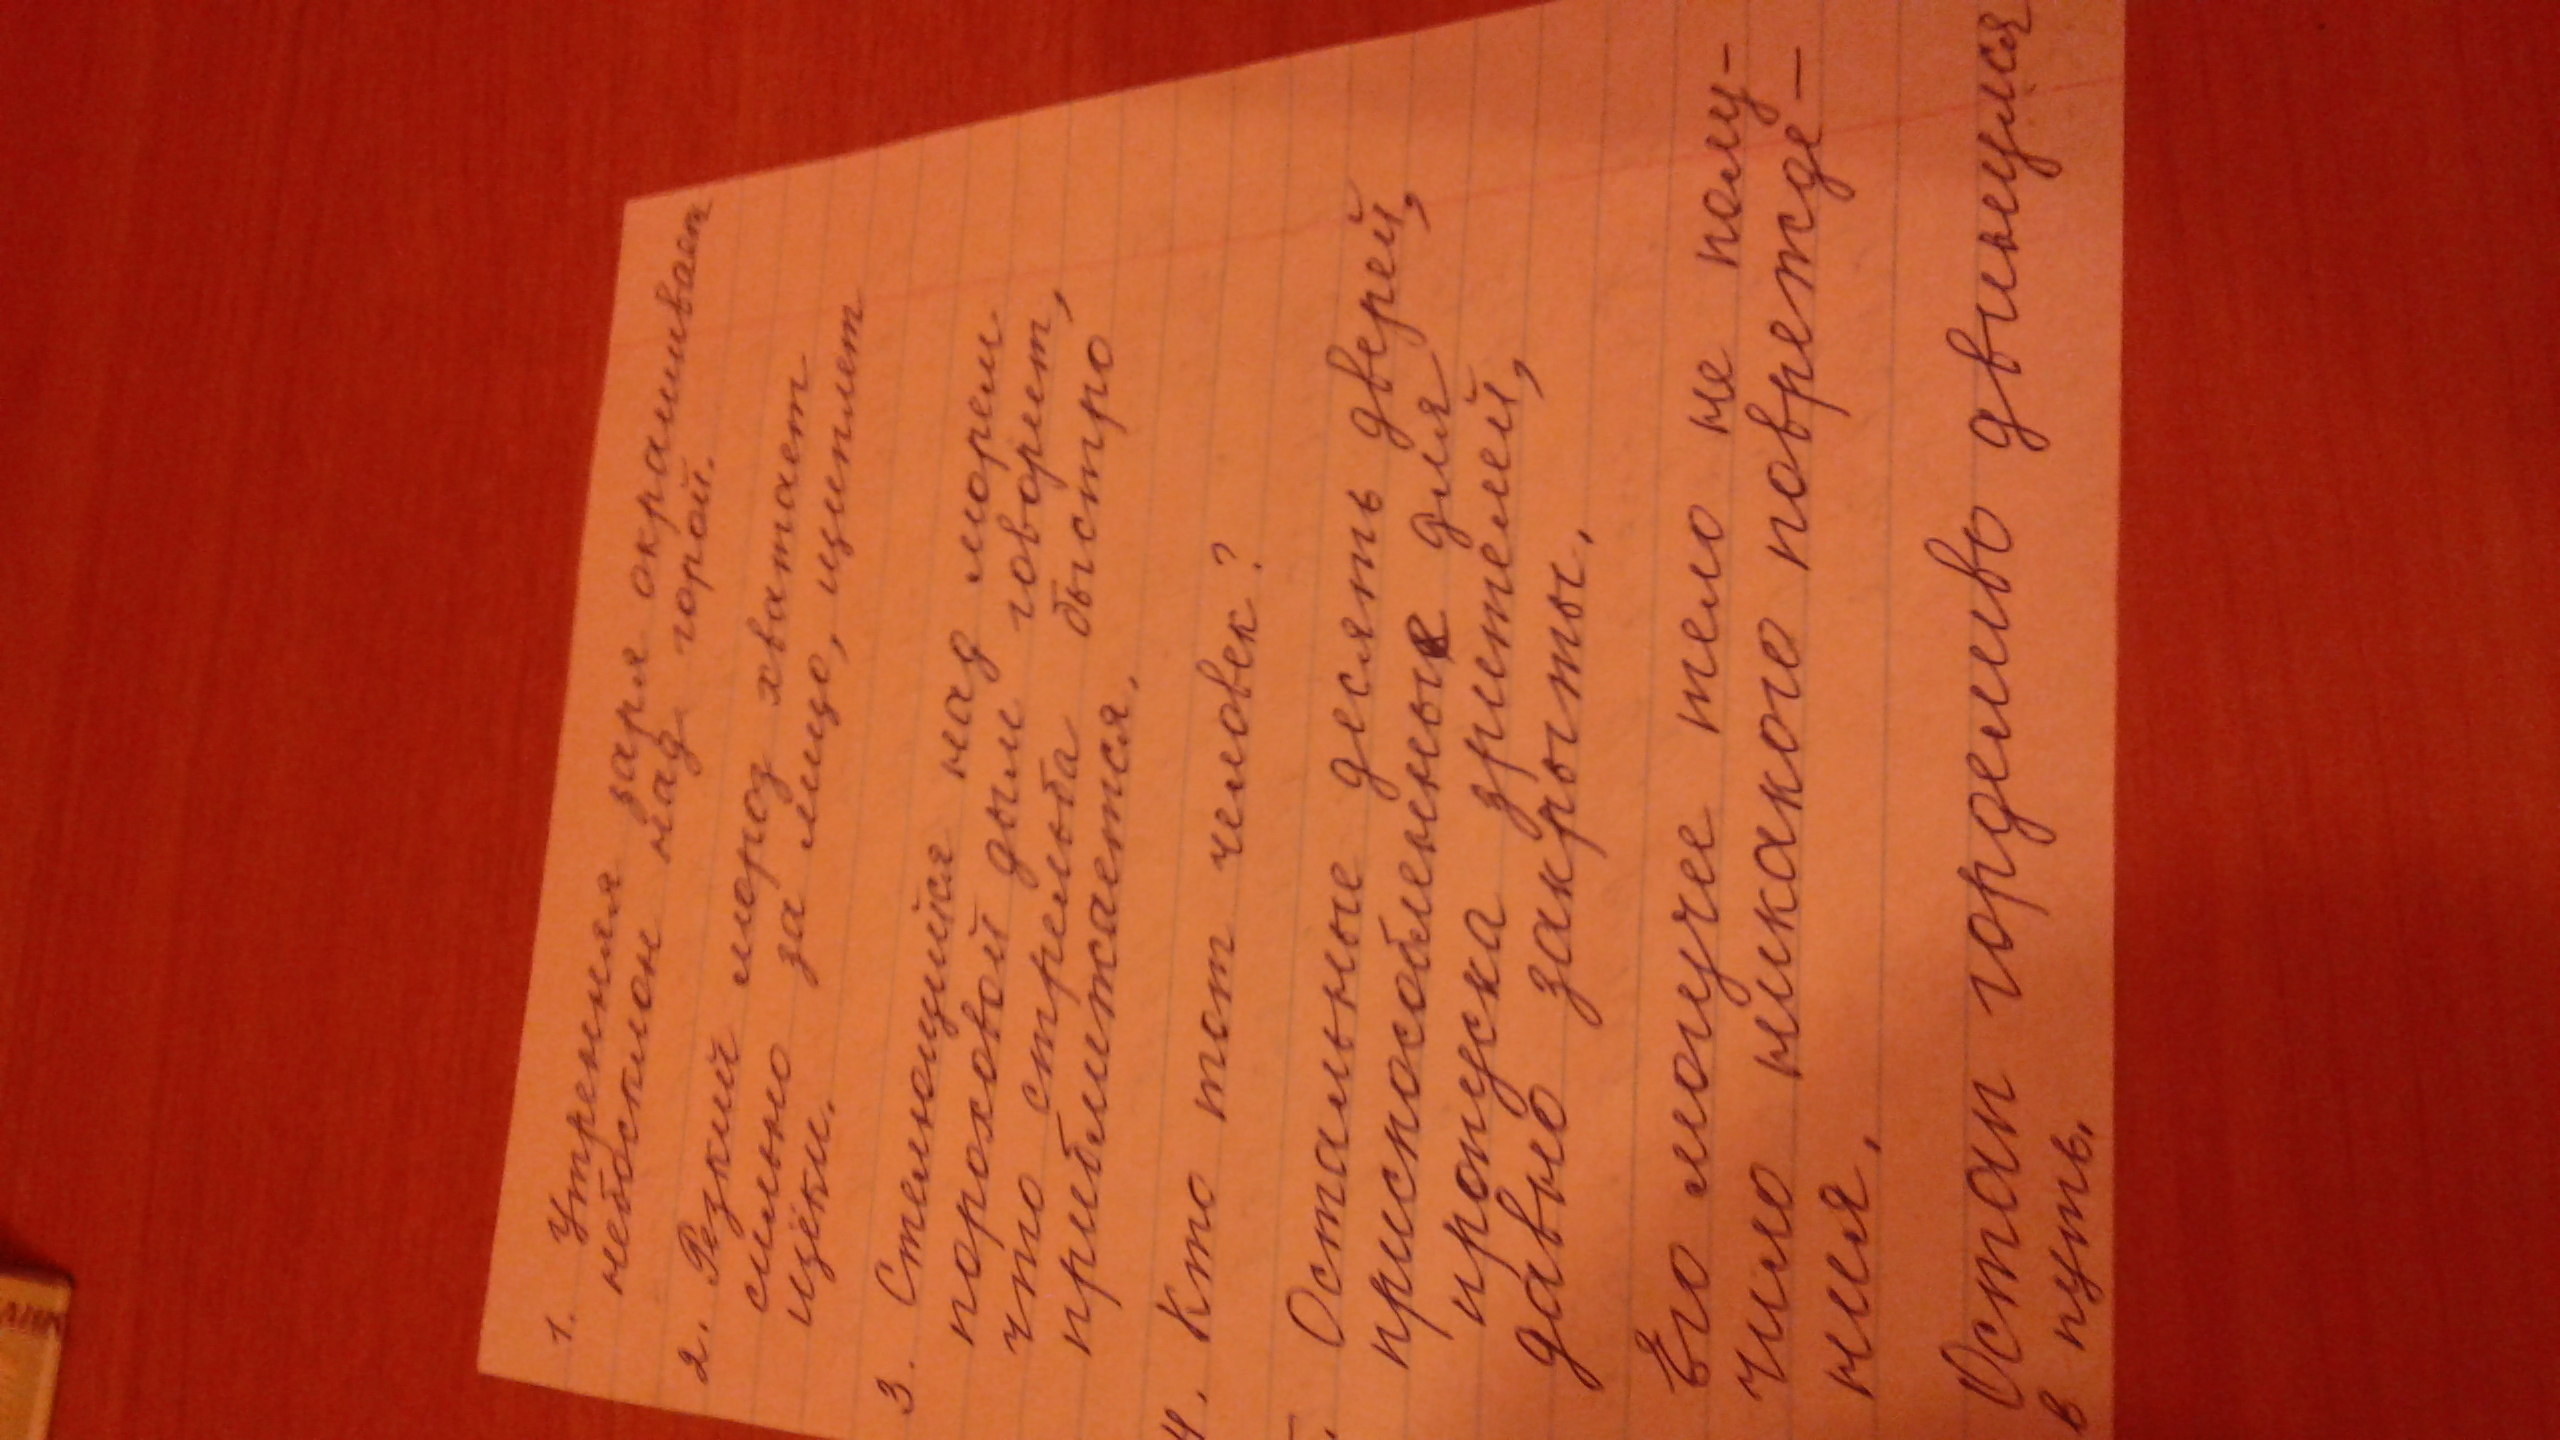 1. Утренняя заря окрашивает
небосклон над горой.
2. Резкий мороз хватает
сильно за лицо, щиплет
щёки.
3. Стелющийся над морем
пороховой дым говорит,
что стрельба быстро
приближается.
4. Кто тот человек?
Остальные десять дверей,
приспособленные для
пропуска зрителей,
давно закрыты.
Его могучее тело не полу-
чило никакого поврежде-
ния.
Остап горделиво двинулся
в путь.